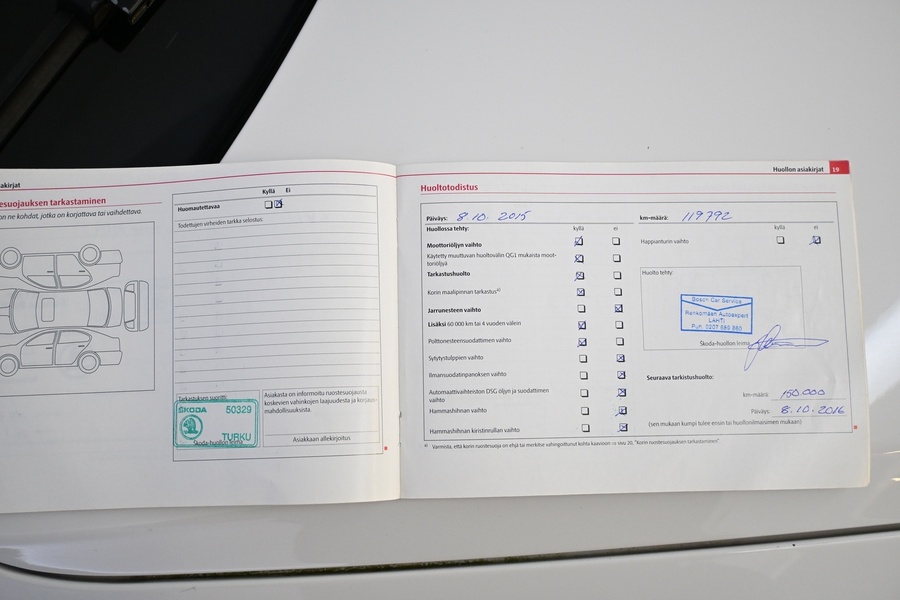 esuojauksen tarkastaminen
on ne kohdat, jotka on korjattava tai vaihdettava.
Kyllä Ei
Huomautettavaa
Todettujen virheiden tarkka selostus:
Tarkastuksen suoritti:
ŠKODA 50329
TURKU
Skoda-huollon leima
Asiakasta on informoitu ruostesuojausta
koskevien vahinkojen laajuudesta ja korjaus-
mahdollisuuksista.
Asiakkaan allekirjoitus
Huollon asiakirjat 19
Huoltotodistus
Päiväys: 8.10.2015
km-määrä: 119792
Huollossa tehty: kyllä ei
Moottoriöljyn vaihto
Käytetty muuttuvan huoltovälin QG1 mukaista moot-
toriöljyä
Tarkastushuolto
Korin maalipinnan tarkastus a)
Jarrunesteen vaihto
Lisäksi 60 000 km tai 4 vuoden välein
Polttonesteensuodattimen vaihto
Sytytystulppien vaihto
Ilmansuodatinpanoksen vaihto
Automaattivaihteiston DSG öljyn ja suodattimen
vaihto
Hammashihnan vaihto
Hammashihnan kiristinrullan vaihto
kyllä ei
Happianturin vaihto
Huolto tehty:
Bosch Car Service
Renkomäen Autoexpert
LAHTI
Puh.
Skoda-huollon leima
Seuraava tarkistushuolto:
km-määrä: 150.000
Päiväys: 8.10.2016
(sen mukaan kumpi tulee ensin tai huollonilmaisimen mukaan)
a) Varmista, että korin ruostesuoja on ehjä tai merkitse vahingoittunut kohta kaavioon sivu 20, "Korin ruostesuojauksen tarkastaminen".